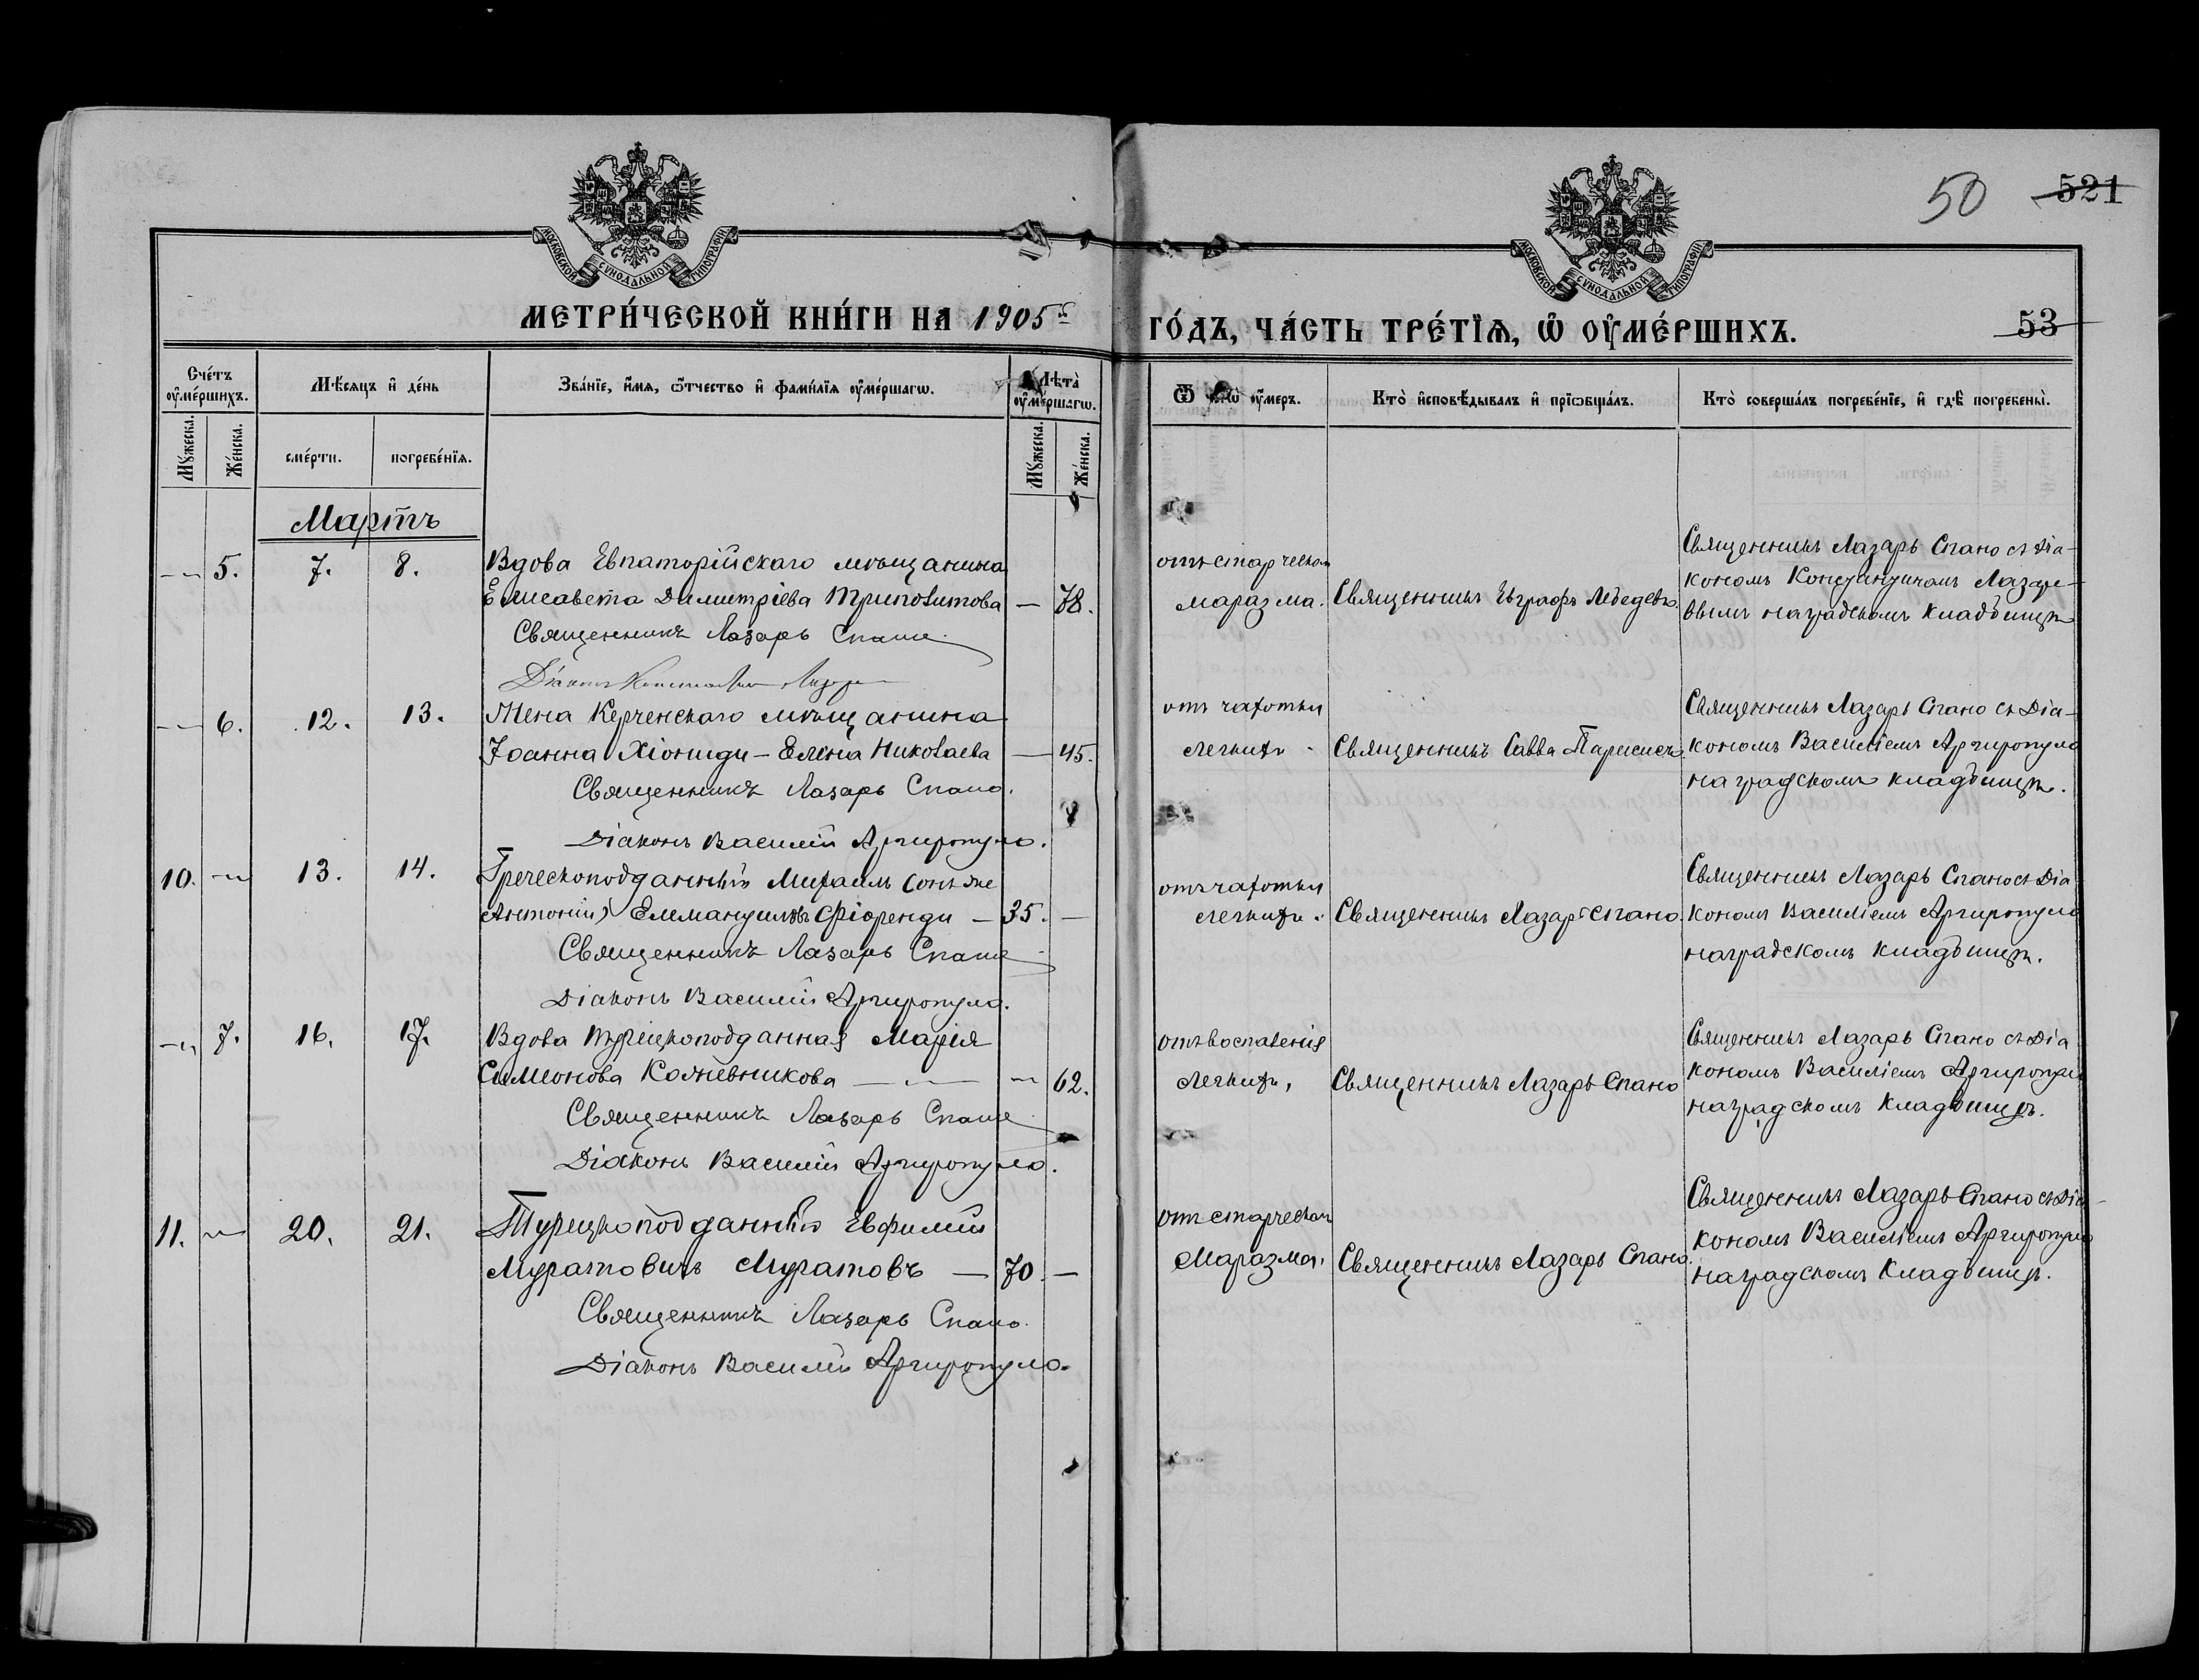 50 521
МОСКОВСКОЙ СѴНОДАЛЬНОЙ ТИПОГРАФІИ
МОСКОВСКОЙ СѴНОДАЛЬНОЙ ТИПОГРАФІИ
МЕТРИ́ЧЕСКОЙ КНИ́ГИ НА 1905й
ГО́ДЪ, ЧА́СТЬ ТРЕ́ТЇѦ, Ѡ҆ ОУ҆МЕ́РШИХЪ.
53
Сче́тъ оу҆ме́ршихъ.
Мѣ́сѧцъ и҆ де́нь
Зва́нїе, и҆́мѧ, ѻ҆́тчество и҆ фами́лїѧ оу҆ме́ршагѡ.
Лѣта̀ оу҆ме́ршагѡ.
Ѿ оу҆́меръ.
Кто̀ и҆сповѣ́дывалъ и҆ прїѡбща́лъ.
Кто̀ соверша́лъ погребе́нїе, и҆ гдѣ̀ погребены̀.
Мꙋ́жеска.
Же́нска.
сме́рти.
погребе́нїѧ.
Мꙋ́жеска.
Же́нска.
Мартъ
5. 7. 8. Вдова Евпаторійскаго мѣщанина
Елисавета Димитріева Триполитова — 78.
Священникъ Лазарь Спано
Діаконъ
отъ старческаго
маразма.
Священникъ Евграфъ Лебедевъ.
Священникъ Лазарь Спано съ Діа-
кономъ Константиномъ Лазаре-
вымъ на градскомъ кладбищѣ
6. 12. 13. Жена Керченскаго мѣщанина
Іоанна Хіониди – Елена Николаева — 45.
Священникъ Лазарь Спано.
Діаконъ Василій Аргиропуло.
отъ чахотки
легкихъ.
Священникъ Савва Парисисъ.
Священникъ Лазарь Спано съ Діа-
кономъ Василіемъ Аргиропуло
на градскомъ кладбищѣ.
10. 13. 14. Греческоподданный Михаилъ (онъ же
Антоній) Еммануиловъ Фіоренди — 35. —
Священникъ Лазарь Спано
Діаконъ Василій Аргиропуло.
отъ чахотки
легкихъ.
Священникъ Лазарь Спано.
Священникъ Лазарь Спано съ Діа
кономъ Василіемъ Аргиропуло
на градскомъ кладбищѣ.
7. 16. 17. Вдова Турецкоподданная Марія
Симеонова Кожевникова — 62.
Священникъ Лазарь Спано
Діаконъ Василій Аргиропуло.
отъ воспаленія
легкихъ,
Священникъ Лазарь Спано
Священникъ Лазарь Спано съ Діа
кономъ Василіемъ Аргиропуло
на градскомъ кладбищѣ.
11. 20. 21. Турецкоподданный Евфимій
Муратовичъ Муратовъ — 70. —
Священникъ Лазарь Спано.
Діаконъ Василій Аргиропуло.
отъ старческаго
маразма.
Священникъ Лазарь Спано.
Священникъ Лазарь Спано съ Діа-
кономъ Василіемъ Аргиропуло
на градскомъ кладбищѣ.